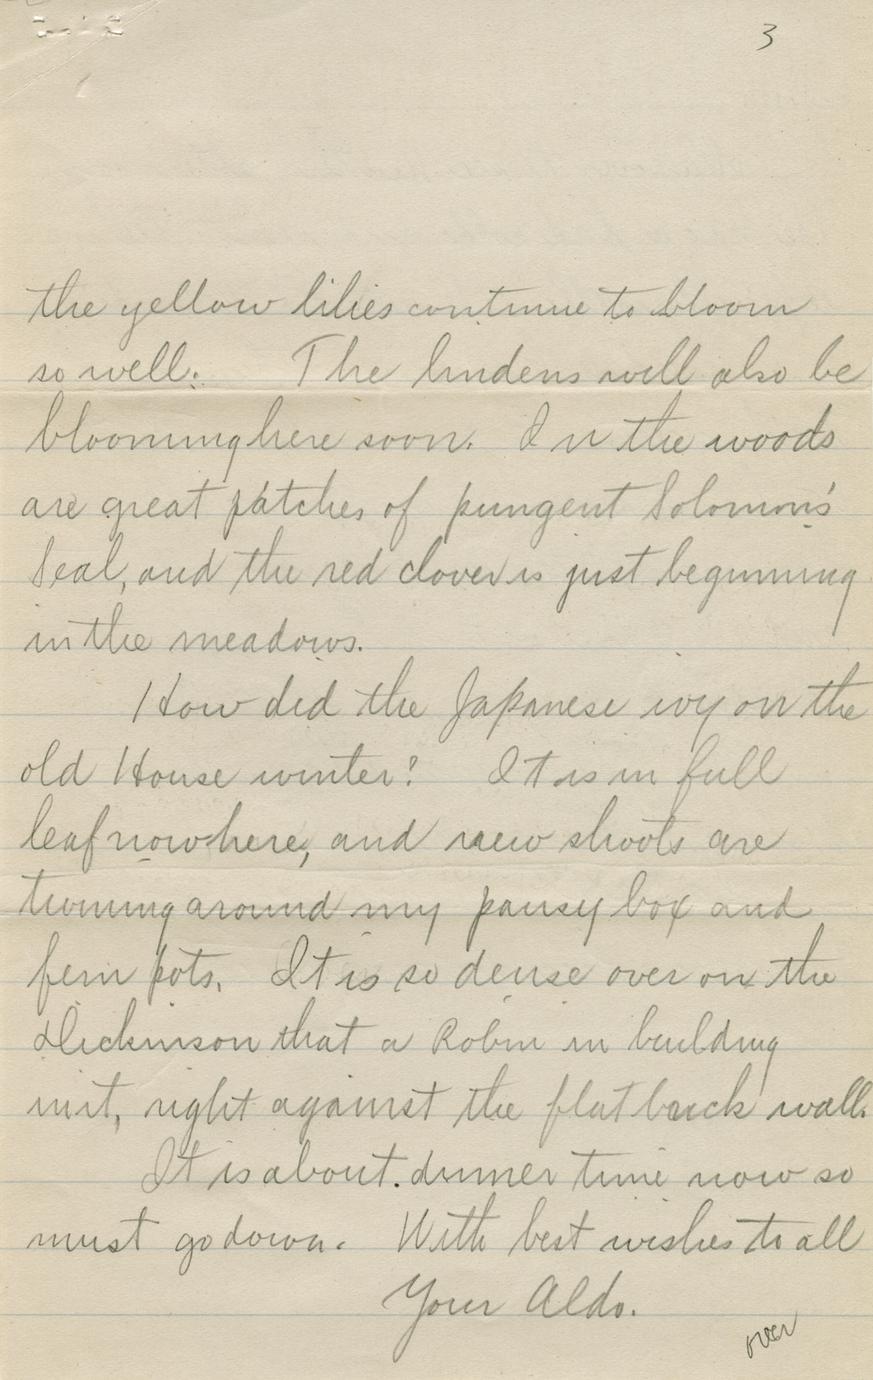 3
the yellow lilies continue to bloom
so well. The lindens will also be
blooming here soon. In the woods
are great patches of pungent Solomon's
Seal, and the red clover is just beginning
in the meadows.
How did the Japanese ivy on the
old House winter? It is in full
leaf now here, and new shoots are
twining around my pansy box and
fern pots. It is so dense over on the
Dickinson that a Robin in building
in it, right against the flat brick wall.
It is about dinner time now so
must go down. With best wishes to all
Your Aldo.
over